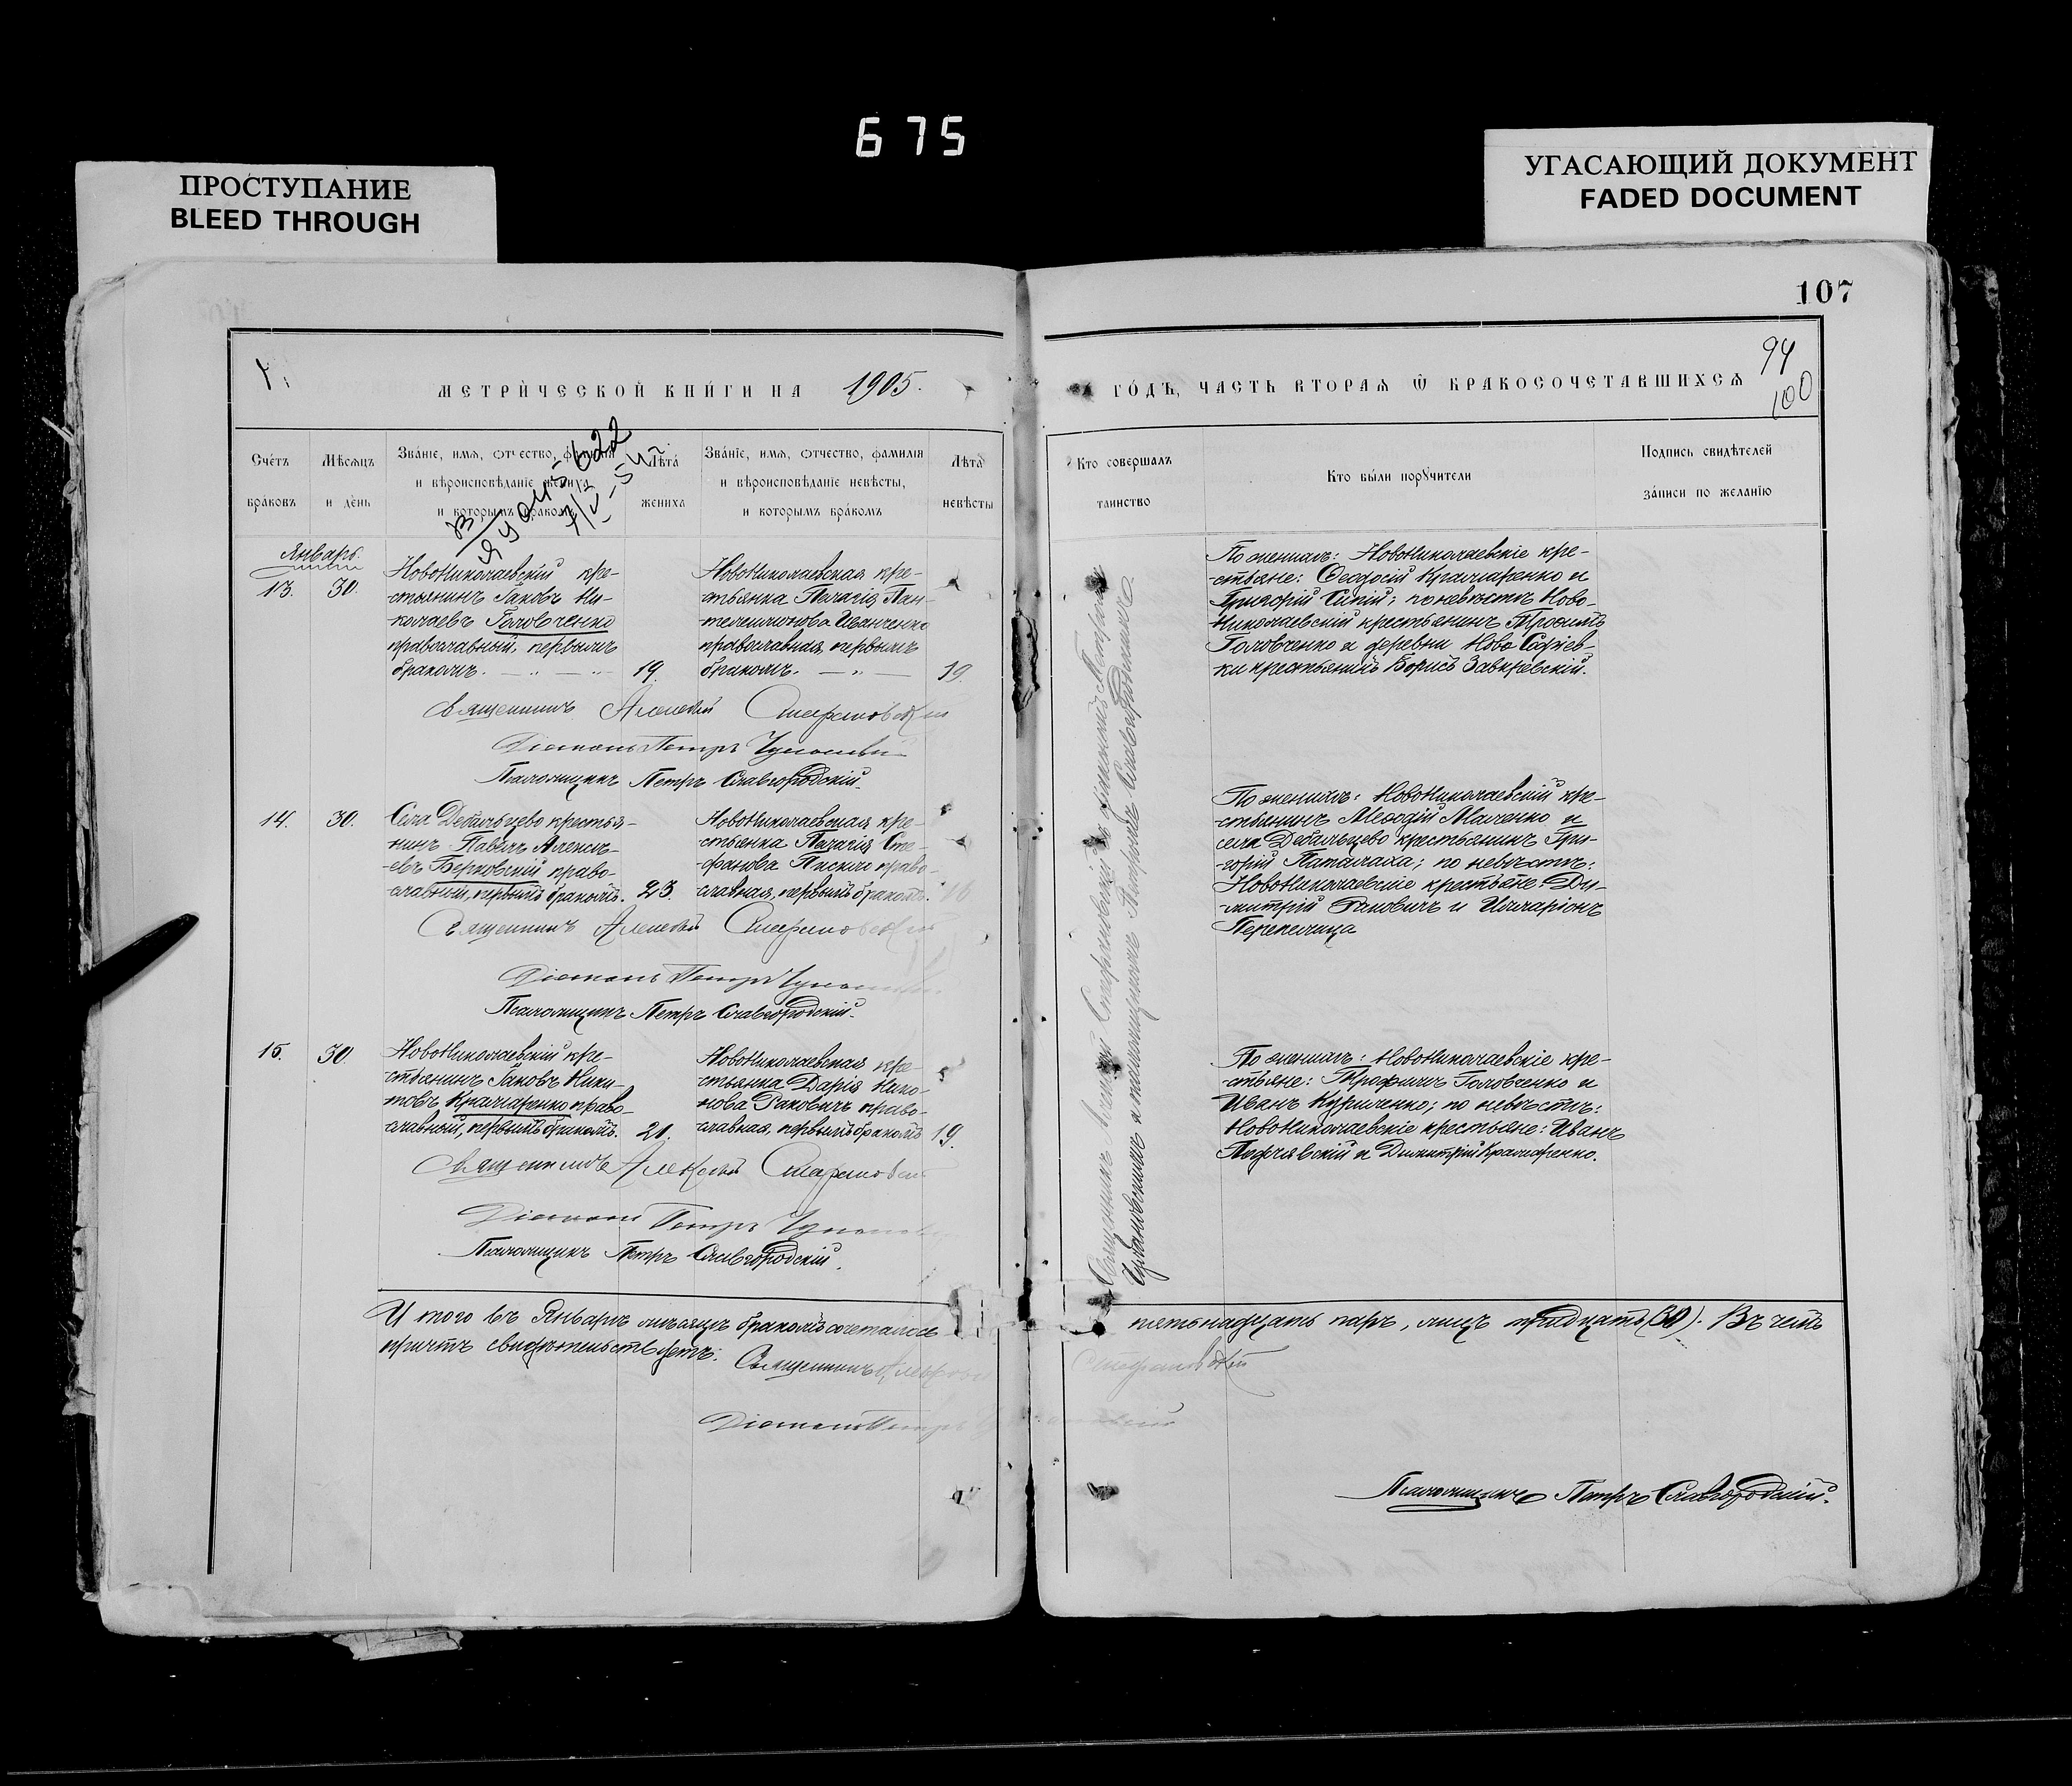 675
ПРОСТУПАНИЕ
BLEED THROUGH
УГАСАЮЩИЙ ДОКУМЕНТ
FADED DOCUMENT
107
94
100
МЕТРИ́ЧЕСКОЙ КНИ́ГИ НА 1905.
ГО́ДЪ, ЧАСТЬ ВТОРАѦ Ѡ҆ БРАКОСОЧЕТАВШИХСѦ
Сче́тъ
бра́ковъ
Мѣ́сѧцъ
и де́нь
Зва́нїе, имѧ, ѻтчество, фамилїѧ
и вѣроисповѣданїе жениха,
и которымъ бра́комъ
Лѣта́
жениха
Зва́нїе, имѧ, ѻтчество, фамилїѧ
и вѣроисповѣданїе невѣсты,
и которымъ бра́комъ
Лѣта
невѣсты
Кто соверша́лъ
таинство
Кто бы́ли порꙋчители
Подпись свидѣ́телей
за́писи по жела́нїю
622
Январь.
13.
30.
НовоНиколаевскій кре-
стьянинъ Іаковъ Ни-
колаевъ Головченко
православный, первымъ
бракомъ.
19.
НовоНиколаевская кре-
стьянка Пелагія Пан-
телеимонова Иванченко
православная, первымъ
бракомъ.
19.
По женихѣ: НовоНиколаевскіе кре-
-стьяне: Ѳеодосій Крамаренко и
Григорій Сипій; по невѣстѣ Ново-
Николаевскій крестьянинъ Трофимъ
Головченко и деревни Ново Софіев-
ки крестьянинъ Борисъ
Священникъ Алексѣй Стефановскій
Діаконъ Петръ
Псаломщикъ Петръ Славгородскій.
14.
30.
Села Дебальцево крестья-
нинъ Павелъ Алексѣ-
евъ Берковскій право-
славный, первымъ бракомъ.
23.
НовоНиколаевская кре-
стьянка Пелагія Сте-
фанова право-
славная, первымъ бракомъ.
По женихѣ: НовоНиколаевскій кре-
-стьянинъ Меѳодій Маченко и
села Дебальцево крестьянинъ Гри-
-горій Паталаха; по невѣстѣ:
НовоНиколаевскіе крестьяне: Ди-
-митрій Раковичъ и Илларіонъ
Перепелица
Священникъ Алексѣй Стефановскій
Діаконъ Петръ
Псаломщикъ Петръ Славгородскій.
15.
30.
НовоНиколаевскій кре-
-стьянинъ Іаковъ Ники-
товъ Крамаренко право-
славный, первымъ бракомъ.
21.
НовоНиколаевская кре-
стьянка Дарія Нико-
нова Раковичъ право-
славная, первымъ бракомъ
19.
По женихѣ: НовоНиколаевскіе кре-
-стьяне: Трофимъ Головченко и
Иванъ Куриленко; по невѣстѣ:
НовоНиколаевскіе крестьяне: Иванъ
и Димитрій Крамаренко.
Священникъ Алексѣй Стефановскій
Діаконъ Петръ
Псаломщикъ Петръ Славгородскій.
Священникъ Алексѣй Стефановскій съ діакономъ Петромъ
и псаломщикомъ Петромъ Славгородскимъ
И того въ Январѣ мѣсяцѣ бракомъ сочеталось пятьнадцать паръ, лицъ тридцать (30). Въ чемъ
причтъ свидѣтельствуетъ: Священникъ Алексѣй Стефановскій
Діаконъ Петръ
Псаломщикъ Петръ Славгородскій.